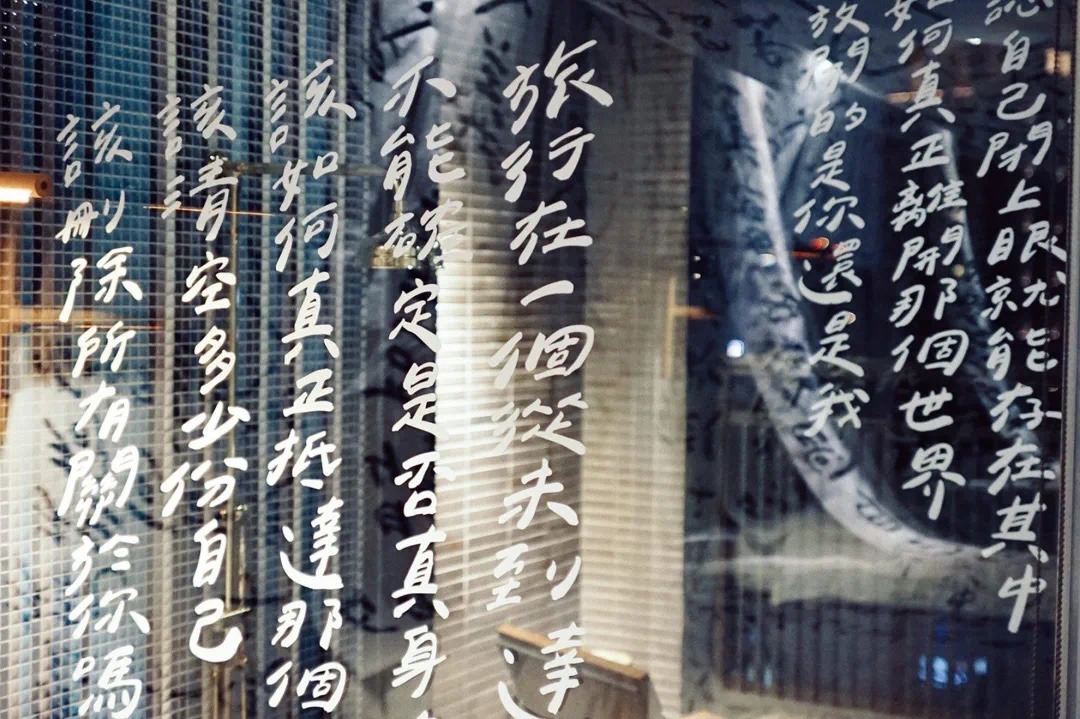 認自己閉上眼就能存在其中
如何真正離開那個世界
放開的是你還是我
旅行在一個從未到達
不能確定是否真身
該如何真正抵達那個
該清空多少份自己
該刪除所有關於你嗎